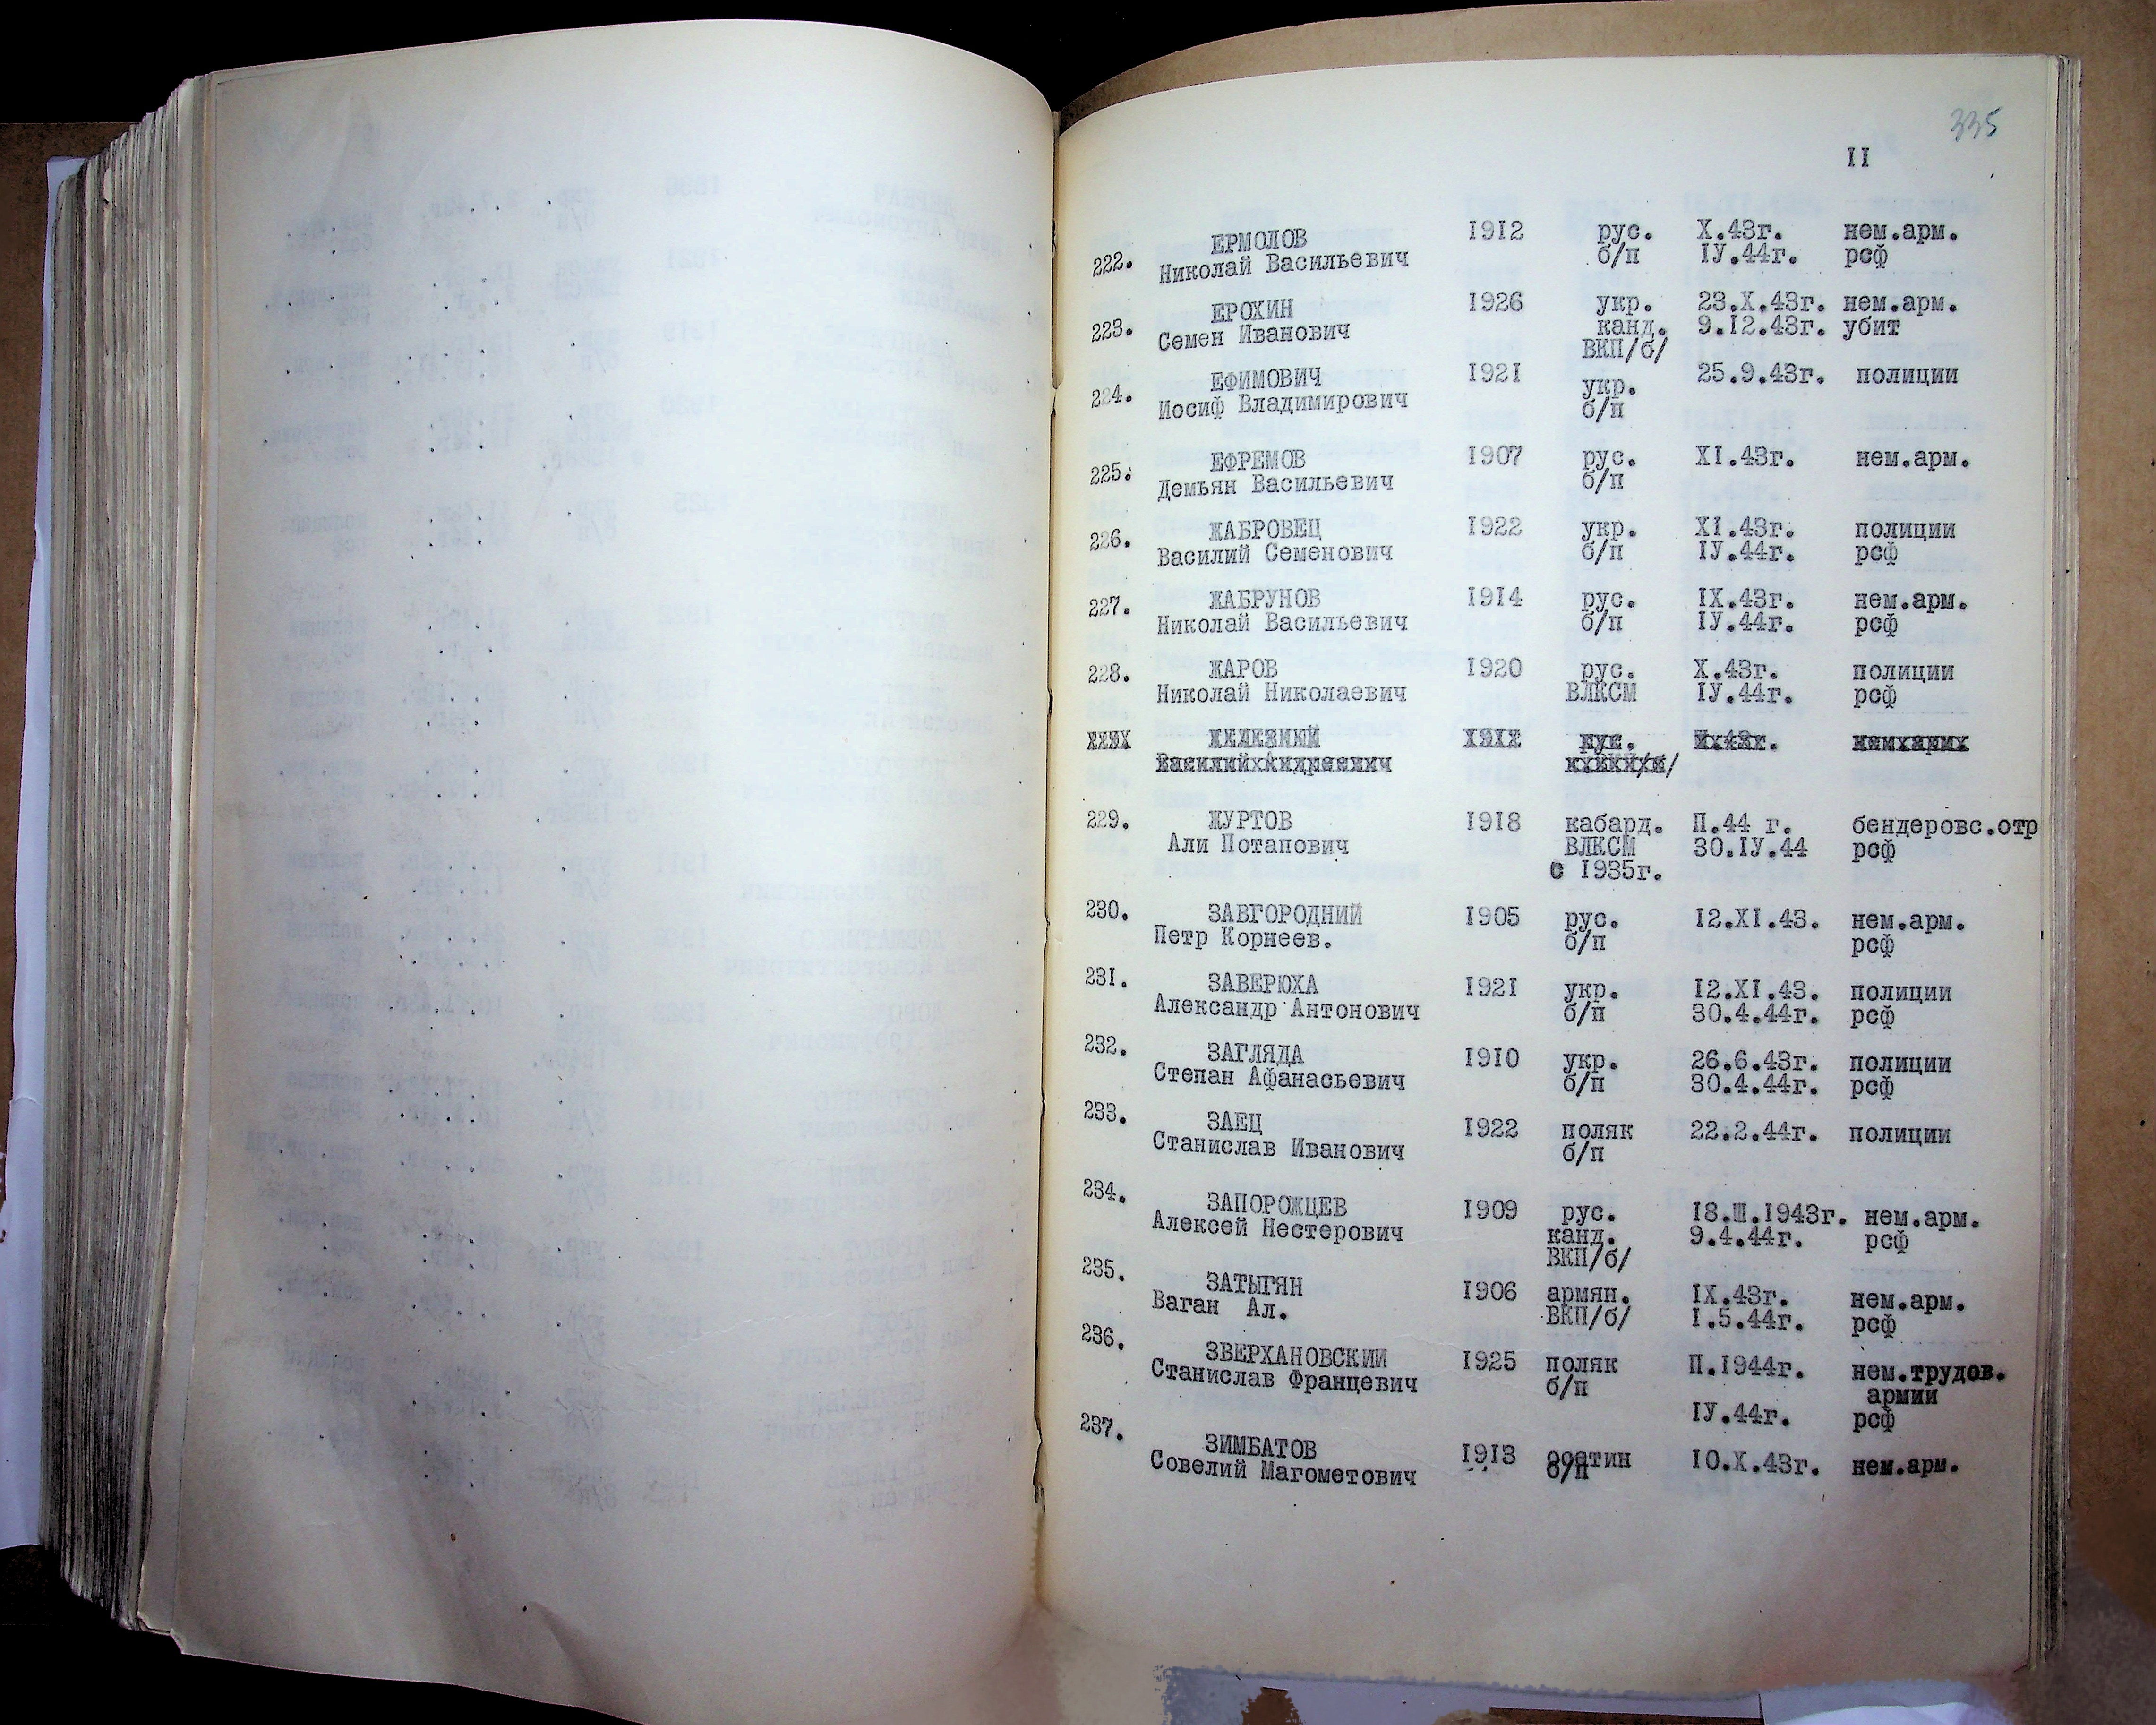 335
II
222. ЕРМОЛОВ 1912 рус. Х.43г. нем.арм.
Николай Васильевич б/п IУ.44г. рсф
223. ЕРОХИН 1926 укр. 23.Х.43г. нем.арм.
Семен Иванович канд. 9.I2.43г. убит
ВКП/б/
224. ЕФИМОВИЧ 1921 укр. 25.9.43г. полиции
Иосиф Владимирович б/п
225. ЕФРЕМОВ 1907 рус. ХI.43г. нем.арм.
Демьян Васильевич б/п
226. ЖАБРОВЕЦ 1922 укр. ХI.43г. полиции
Василий Семенович б/п IУ.44г. рсф
227. ЖАБРУНОВ 1914 рус. IХ.43г. нем.арм.
Николай Васильевич б/п IУ.44г. рсф
228. ЖАРОВ 1920 рус. Х.43г. полиции
Николай Николаевич ВЛКСМ IУ.44г. рсф
ЖЕЛЕЗНЫЙ рус.
Василий Андреевич
229. ЖУРТОВ 1918 кабард. П.44 г. бендеровс.отр
Али Потапович ВЛКСМ 30.IУ.44 рсф
с 1935г.
230. ЗАВГОРОДНИЙ 1905 рус. I2.ХI.43. нем.арм.
Петр Корнеев. б/п рсф
231. ЗАВЕРЮХА 1921 укр. I2.ХI.43. полиции
Александр Антонович б/п 30.4.44г. рсф
232. ЗАГЛЯДА 1910 укр. 26.6.43г. полиции
Степан Афанасьевич б/п 30.4.44г. рсф
233. ЗАЕЦ 1922 поляк 22.2.44г. полиции
Станислав Иванович б/п
234. ЗАПОРОЖЦЕВ 1909 рус. I8.Ш.1943г. нем.арм.
Алексей Нестерович канд. 9.4.44г. рсф
ВКП/б/
235. ЗАТЫГЯН 1906 армян. IХ.43г. нем.арм.
Ваган Ал. ВКП/б/ I.5.44г. рсф
236. ЗВЕРХАНОВСКИИ 1925 поляк П.1944г. нем.трудов.
Станислав Францевич б/п армии
IУ.44г. рсф
237. ЗИМБАТОВ 1913 осетин I0.Х.43г. нем.арм.
Совелий Магометович б/п